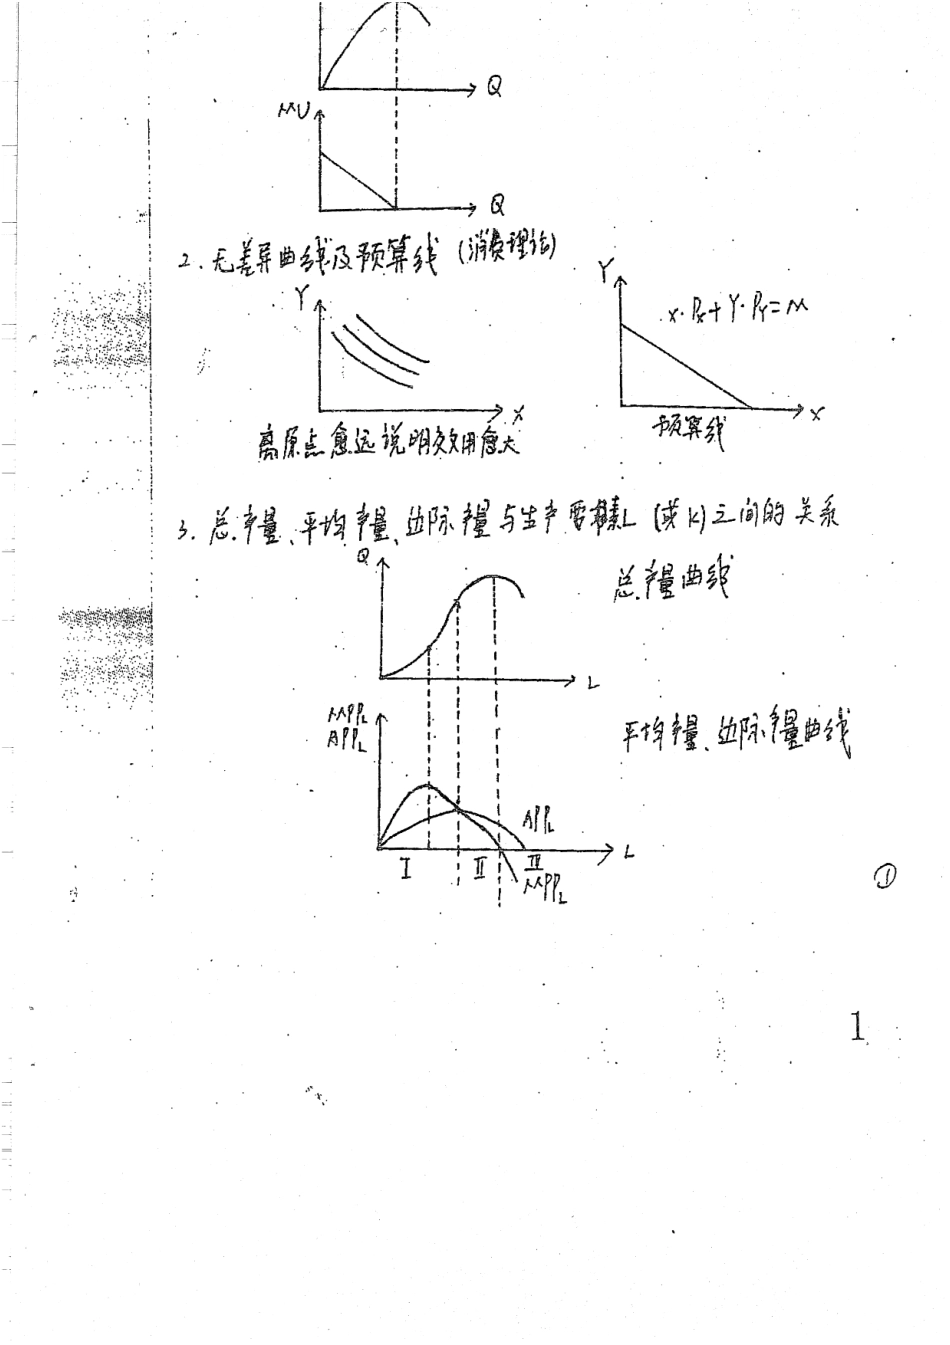 Q
MU
Q
2、无差异曲线及预算线 (消费理论)
Y
X
离原点愈远说明效用愈大
Y
X·Px+Y·PY=M
X
预算线
3、总产量、平均产量、边际产量与生产要素L (或K)之间的关系
Q
总产量曲线
L
MPPL
APPL
平均产量、边际产量曲线
APPL
L
I II III
MPPL
①
1